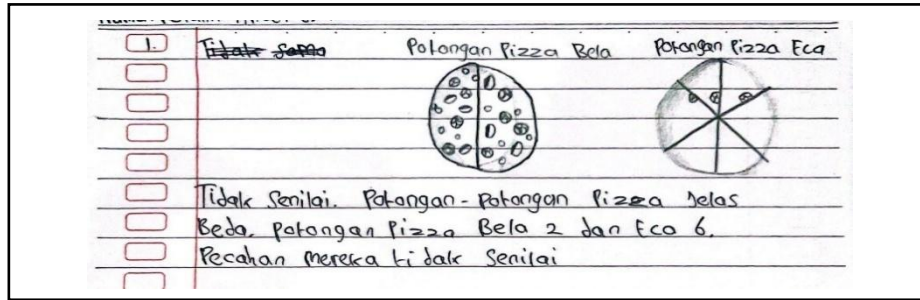 1. Tidak sama Potongan Pizza Bela Potongan Pizza Eca
Tidak Senilai. Potongan-potongan Pizza Jelas
Beda, potongan Pizza Bela 2 dan Eca 6.
Pecahan mereka tidak Senilai